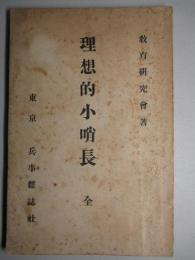 教育研究會著
理想的小哨長 全
東京 兵事雜誌社